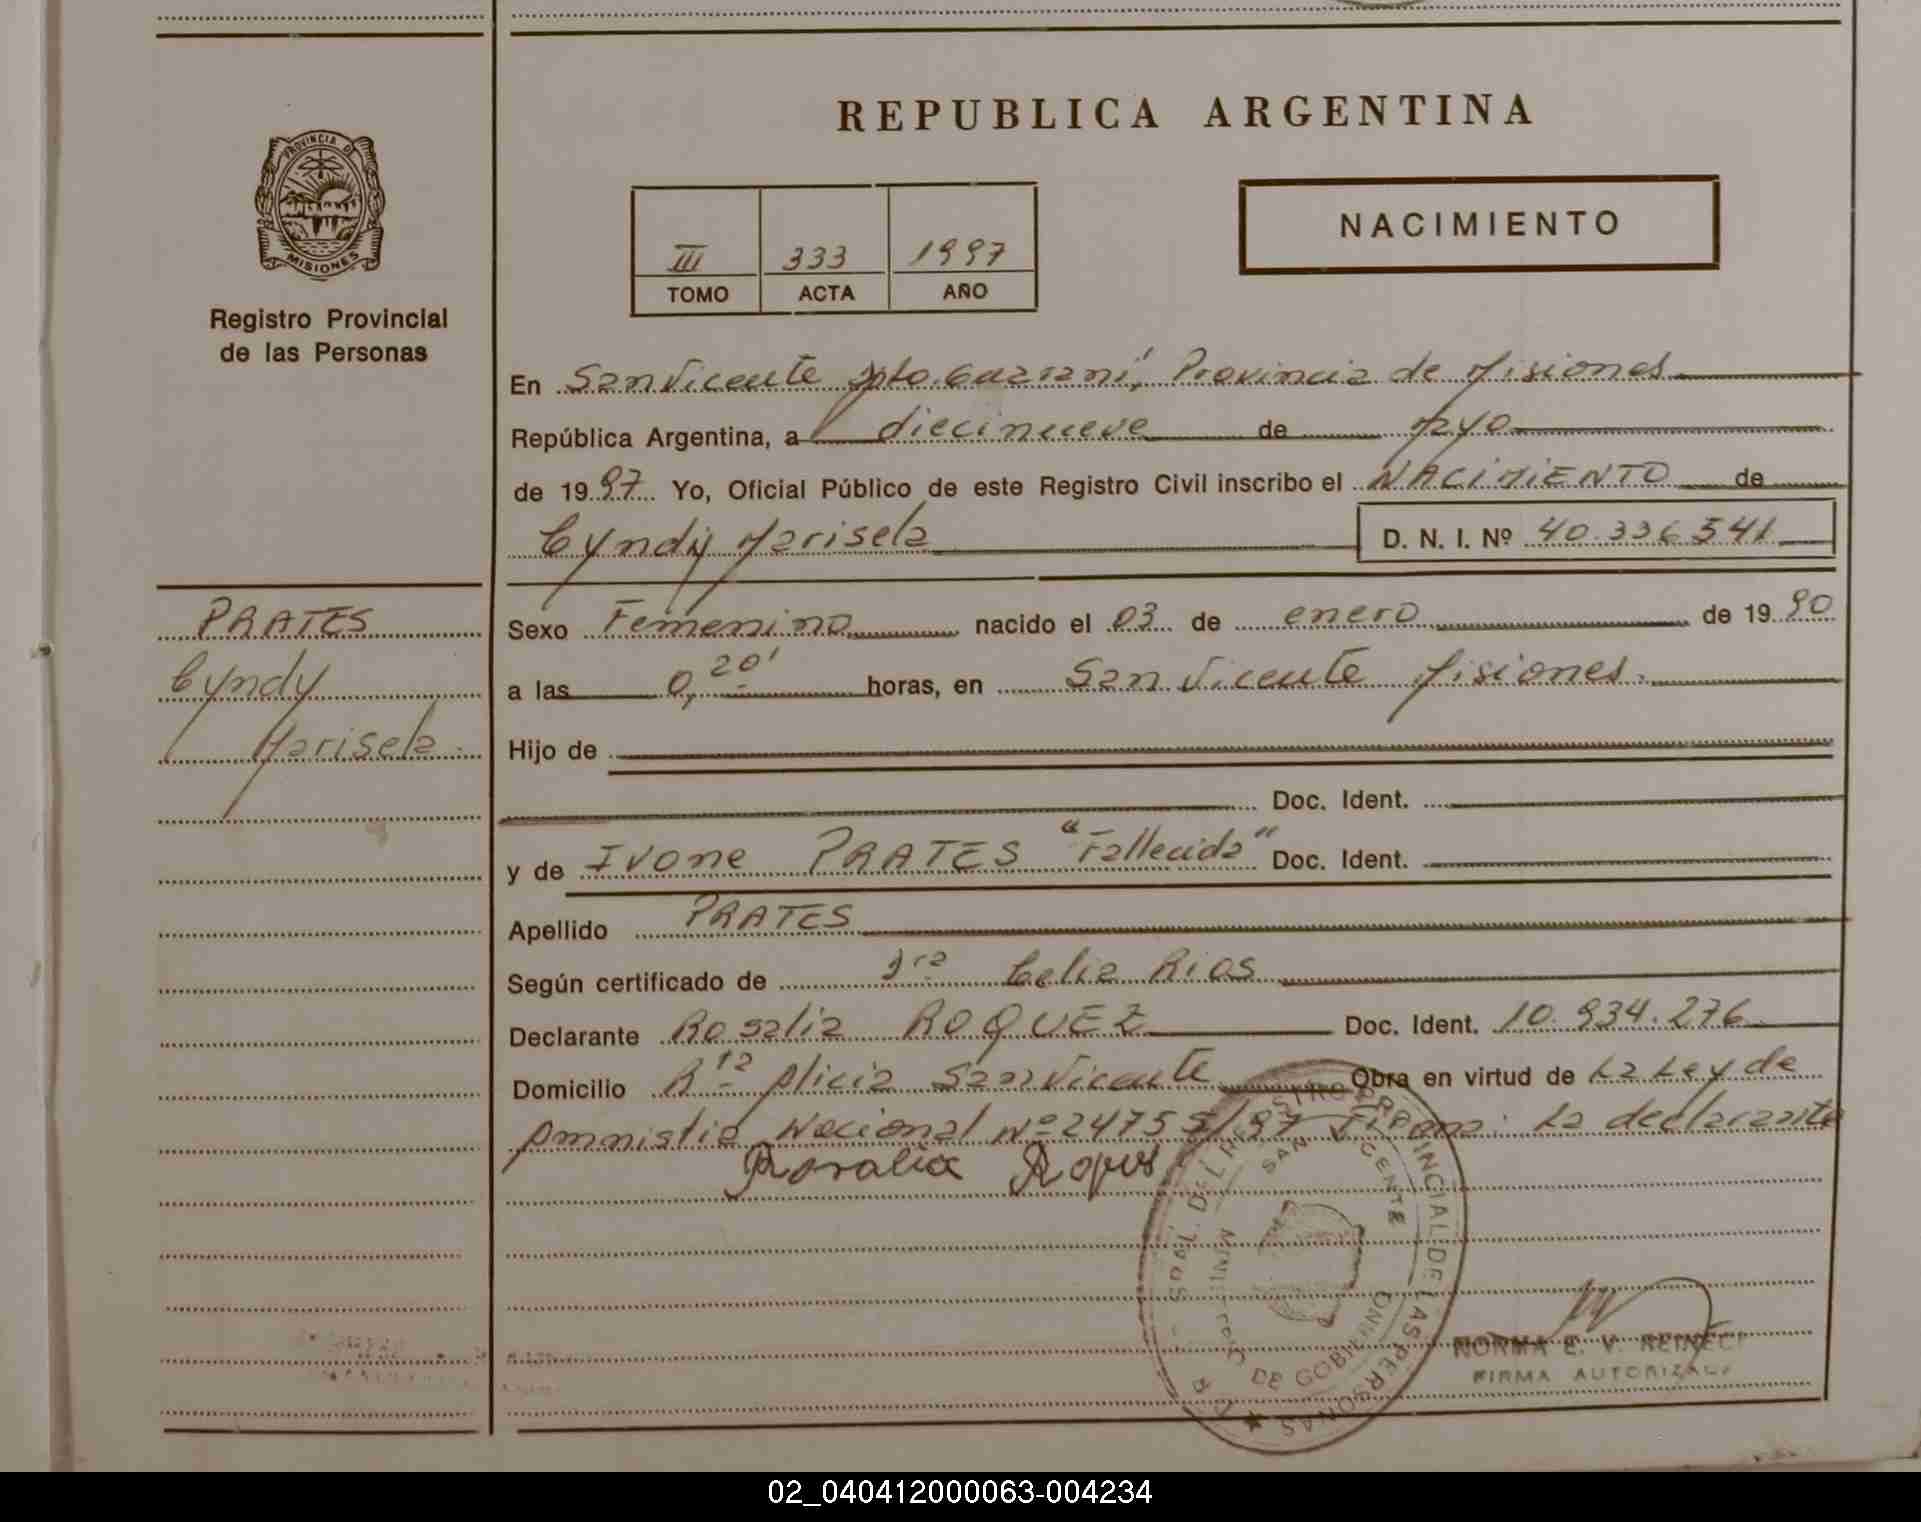 REPUBLICA ARGENTINA
PROVINCIA DE
MISIONES
Registro Provincial
de las Personas
III 333 1997
TOMO ACTA AÑO
NACIMIENTO
En San Vicente Dpto. Guaraní, Provincia de Misiones
República Argentina, a diecinueve de Mayo
de 1997 Yo, Oficial Público de este Registro Civil inscribo el NACIMIENTO de
Cyndy Marisela D. N. I. Nº 40.336.541
PRATES
Cyndy
Marisela.
Sexo Femenino nacido el 03 de enero de 1990
a las 0,20' horas, en San Vicente Misiones.
Hijo de
Doc. Ident.
y de Ivone PRATES "Fallecida" Doc. Ident.
Apellido PRATES
Según certificado de Dra Celia Rios
Declarante Rosalia ROQUEZ Doc. Ident. 10.934.276
Domicilio Bº Alicia San Vicente Obra en virtud de La Ley de
Amnistia Nacional Nº 24755/97 Firma: La declarante
Rosalia
REGISTRO PROVINCIAL DE LAS PERSONAS
SAN VICENTE
MINISTERIO DE GOBIERNO
NORMA E. V. REINECK
FIRMA AUTORIZADA
02_040412000063-004234